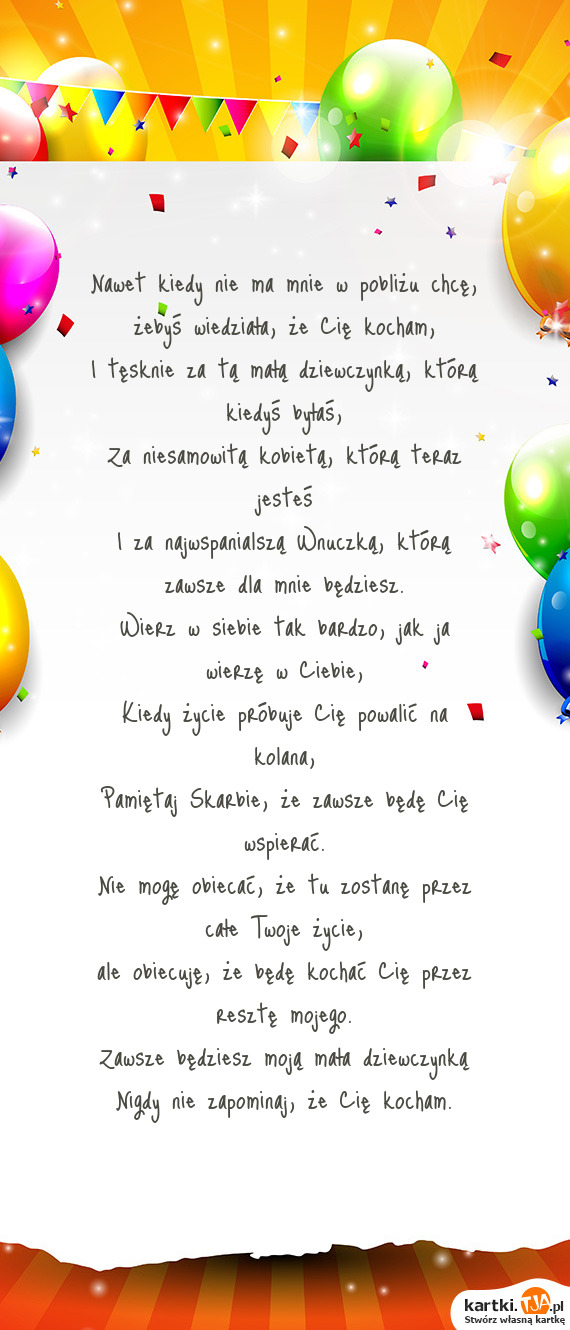 Nawet kiedy nie ma mnie w pobliżu chcę,
żebyś wiedziała, że Cię kocham,
I tęsknie za tą małą dziewczynką, którą
kiedyś byłaś,
Za niesamowitą kobietą, którą teraz
jesteś
I za najwspanialszą Wnuczką, którą
zawsze dla mnie będziesz.
Wierz w siebie tak bardzo, jak ja
wierzę w Ciebie,
Kiedy życie próbuje Cię powalić na
kolana,
Pamiętaj Skarbie, że zawsze będę Cię
wspierać.
Nie mogę obiecać, że tu zostanę przez
całe Twoje życie,
ale obiecuję, że będę kochać Cię przez
resztę mojego.
Zawsze będziesz moją mała dziewczynką
Nigdy nie zapominaj, że Cię kocham.
kartki.TJA.pl
Stwórz własną kartkę